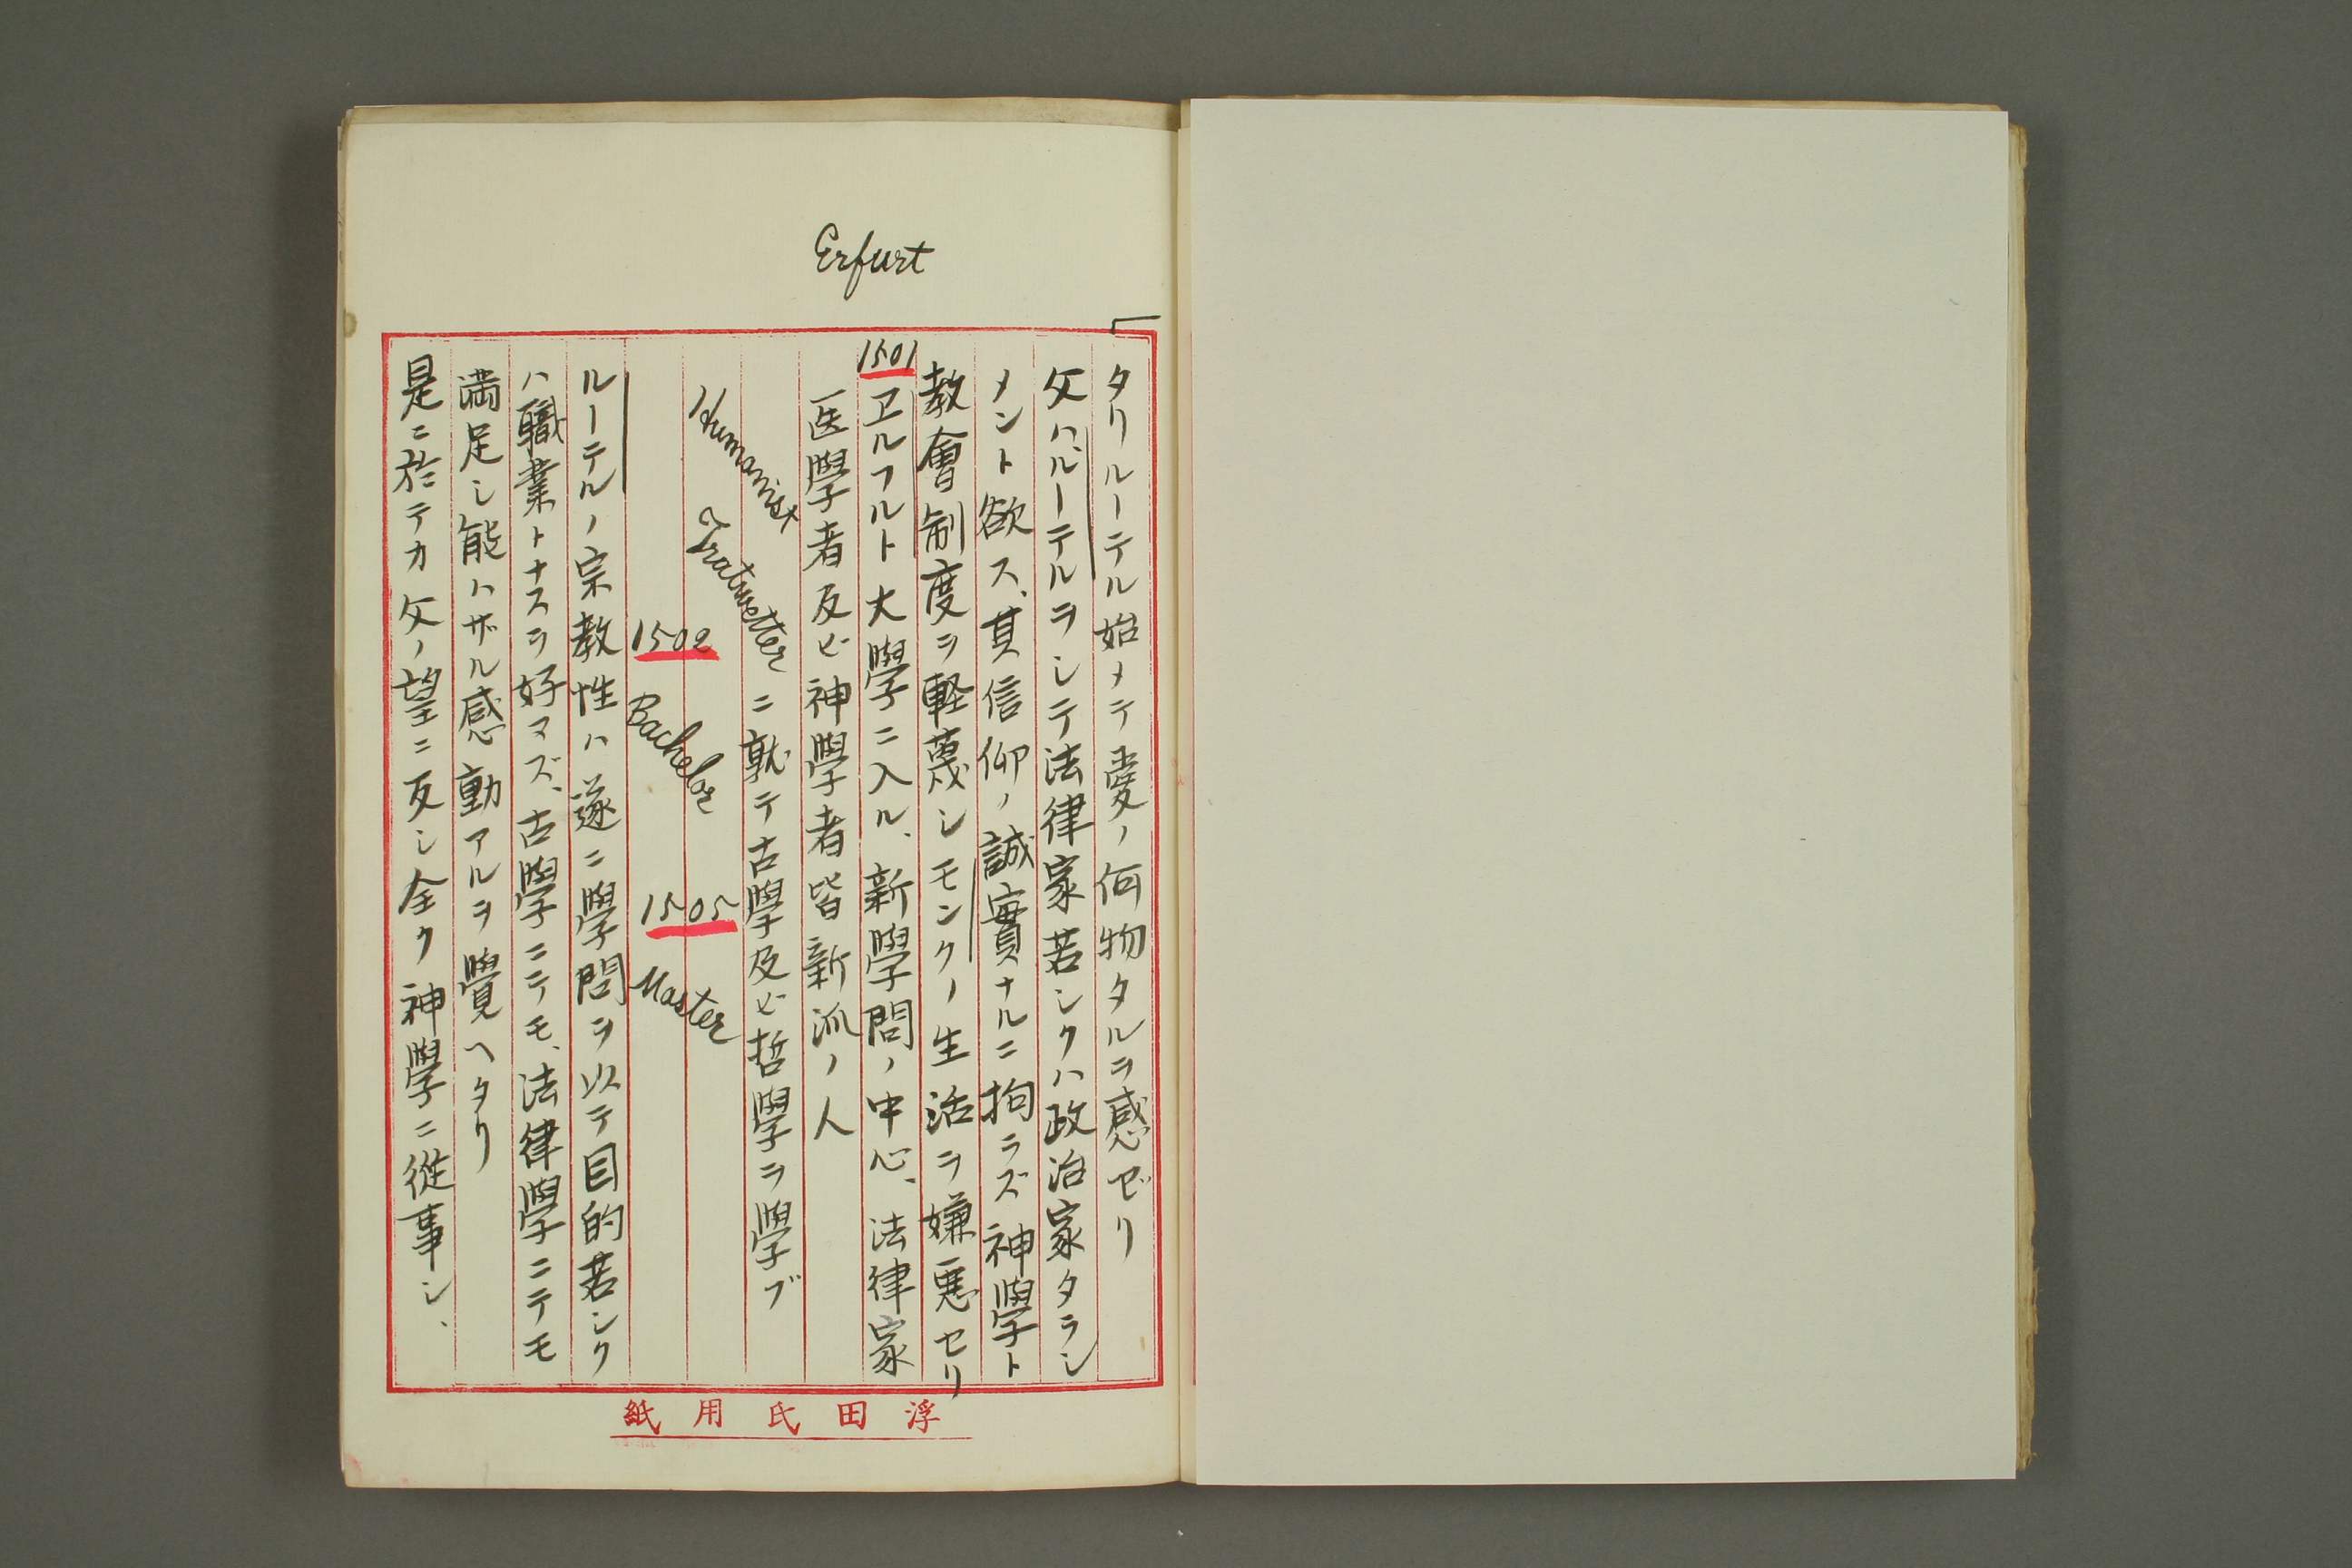 Erfurt
タリルーテル始メテ愛ノ何物タルヲ感ゼリ
父ハルーテルヲシテ法律家若シクハ政治家タラシ
メント欲ス、其信仰ノ誠實ナルニ拘ラズ神學ト
教會制度ヲ軽蔑シモンクノ生活ヲ嫌悪セリ
1501
ヱルフルト大學ニ入ル、新學問ノ中心、法律家
医學者及ビ神學者皆新派ノ人
Humanist
ニ就テ古學及ビ哲學ヲ學ブ
1502 Bachelor 1505 Master
ルーテルノ宗教性ハ遂ニ學問ヲ以テ目的若シク
ハ職業トナスヲ好マズ、古學ニテモ、法律學ニテモ
満足シ能ハザル感動アルヲ覺ヘタリ
是ニ於テカ父ノ望ニ反シ全ク神學ニ從事シ、
浮田氏用紙